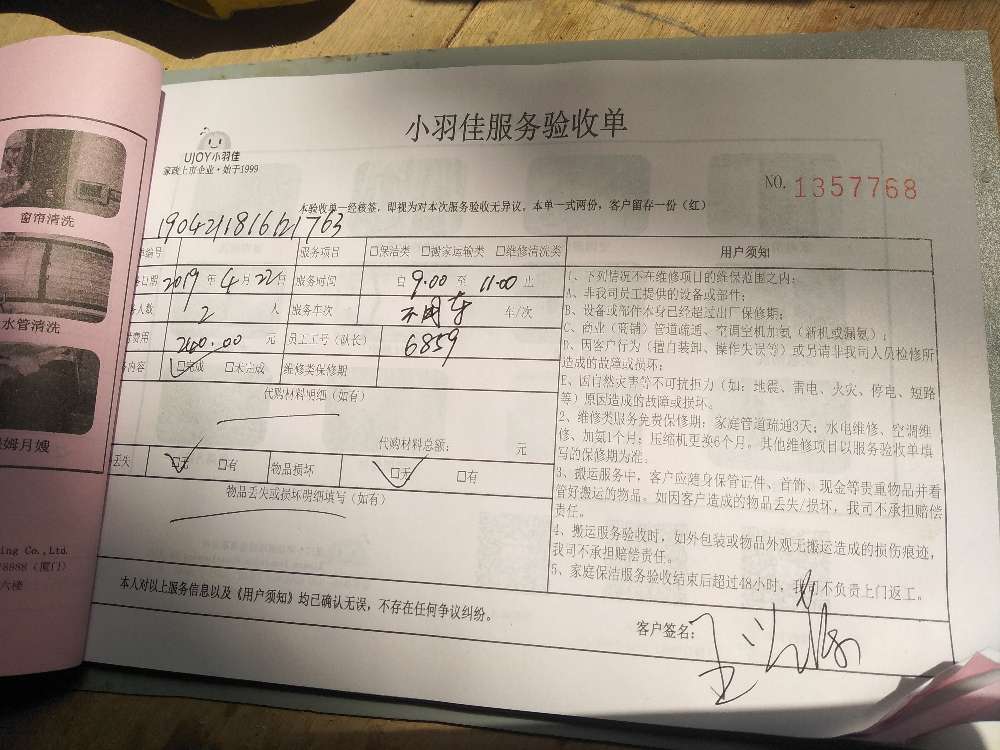 小羽佳服务验收单
UJOY小羽佳
家政上市企业·始于1999
NO. 1357768
本验收单一经核签，即视为对本次服务验收无异议。本单一式两份，客户留存一份（红）
190421181621763
单编号 服务项目 □保洁类 □搬家运输类 □维修清洗类
日期 2019 年 4 月 22 日 服务时间 自 9.00 至 11.00 止
人数 2 人 服务车次 不用车 车/次
费用 240.00 元 员工工号（队长） 6859
内容 □完成 □未完成 维修类保修期
代购材料明细（如有）
代购材料总额： 元
丢失 □无 □有 物品损坏 □无 □有
物品丢失或损坏明细填写（如有）
用户须知
1、下列情况不在维修项目的维保范围之内：
A、非我司员工提供的设备或部件；
B、设备或部件本身已经超过出厂保修期；
C、商业（商铺）管道疏通、空调空机加氨（新机或漏氨）；
D、因客户行为（擅自装卸、操作失误等）或另请非我司人员检修所
造成的故障或损坏；
E、因自然灾害等不可抗拒力（如：地震、雷电、火灾、停电、短路
等）原因造成的故障或损坏。
2、维修类服务免费保修期：家庭管道疏通3天；水电维修、空调维
修、加氨1个月；压缩机更换6个月。其他维修项目以服务验收单填
写的保修期为准。
3、搬运服务中，客户应随身保管证件、首饰、现金等贵重物品并看
管好搬运的物品。如因客户造成的物品丢失/损坏，我司不承担赔偿
责任。
4、搬运服务验收时，如外包装或物品外观无搬运造成的损伤痕迹，
我司不承担赔偿责任。
5、家庭保洁服务验收结束后超过48小时，我司不负责上门返工。
本人对以上服务信息以及《用户须知》均已确认无误，不存在任何争议纠纷。
客户签名：
窗帘清洗
水管清洗
姆月嫂
ing Co.,Ltd.
8888（厦门）
六楼